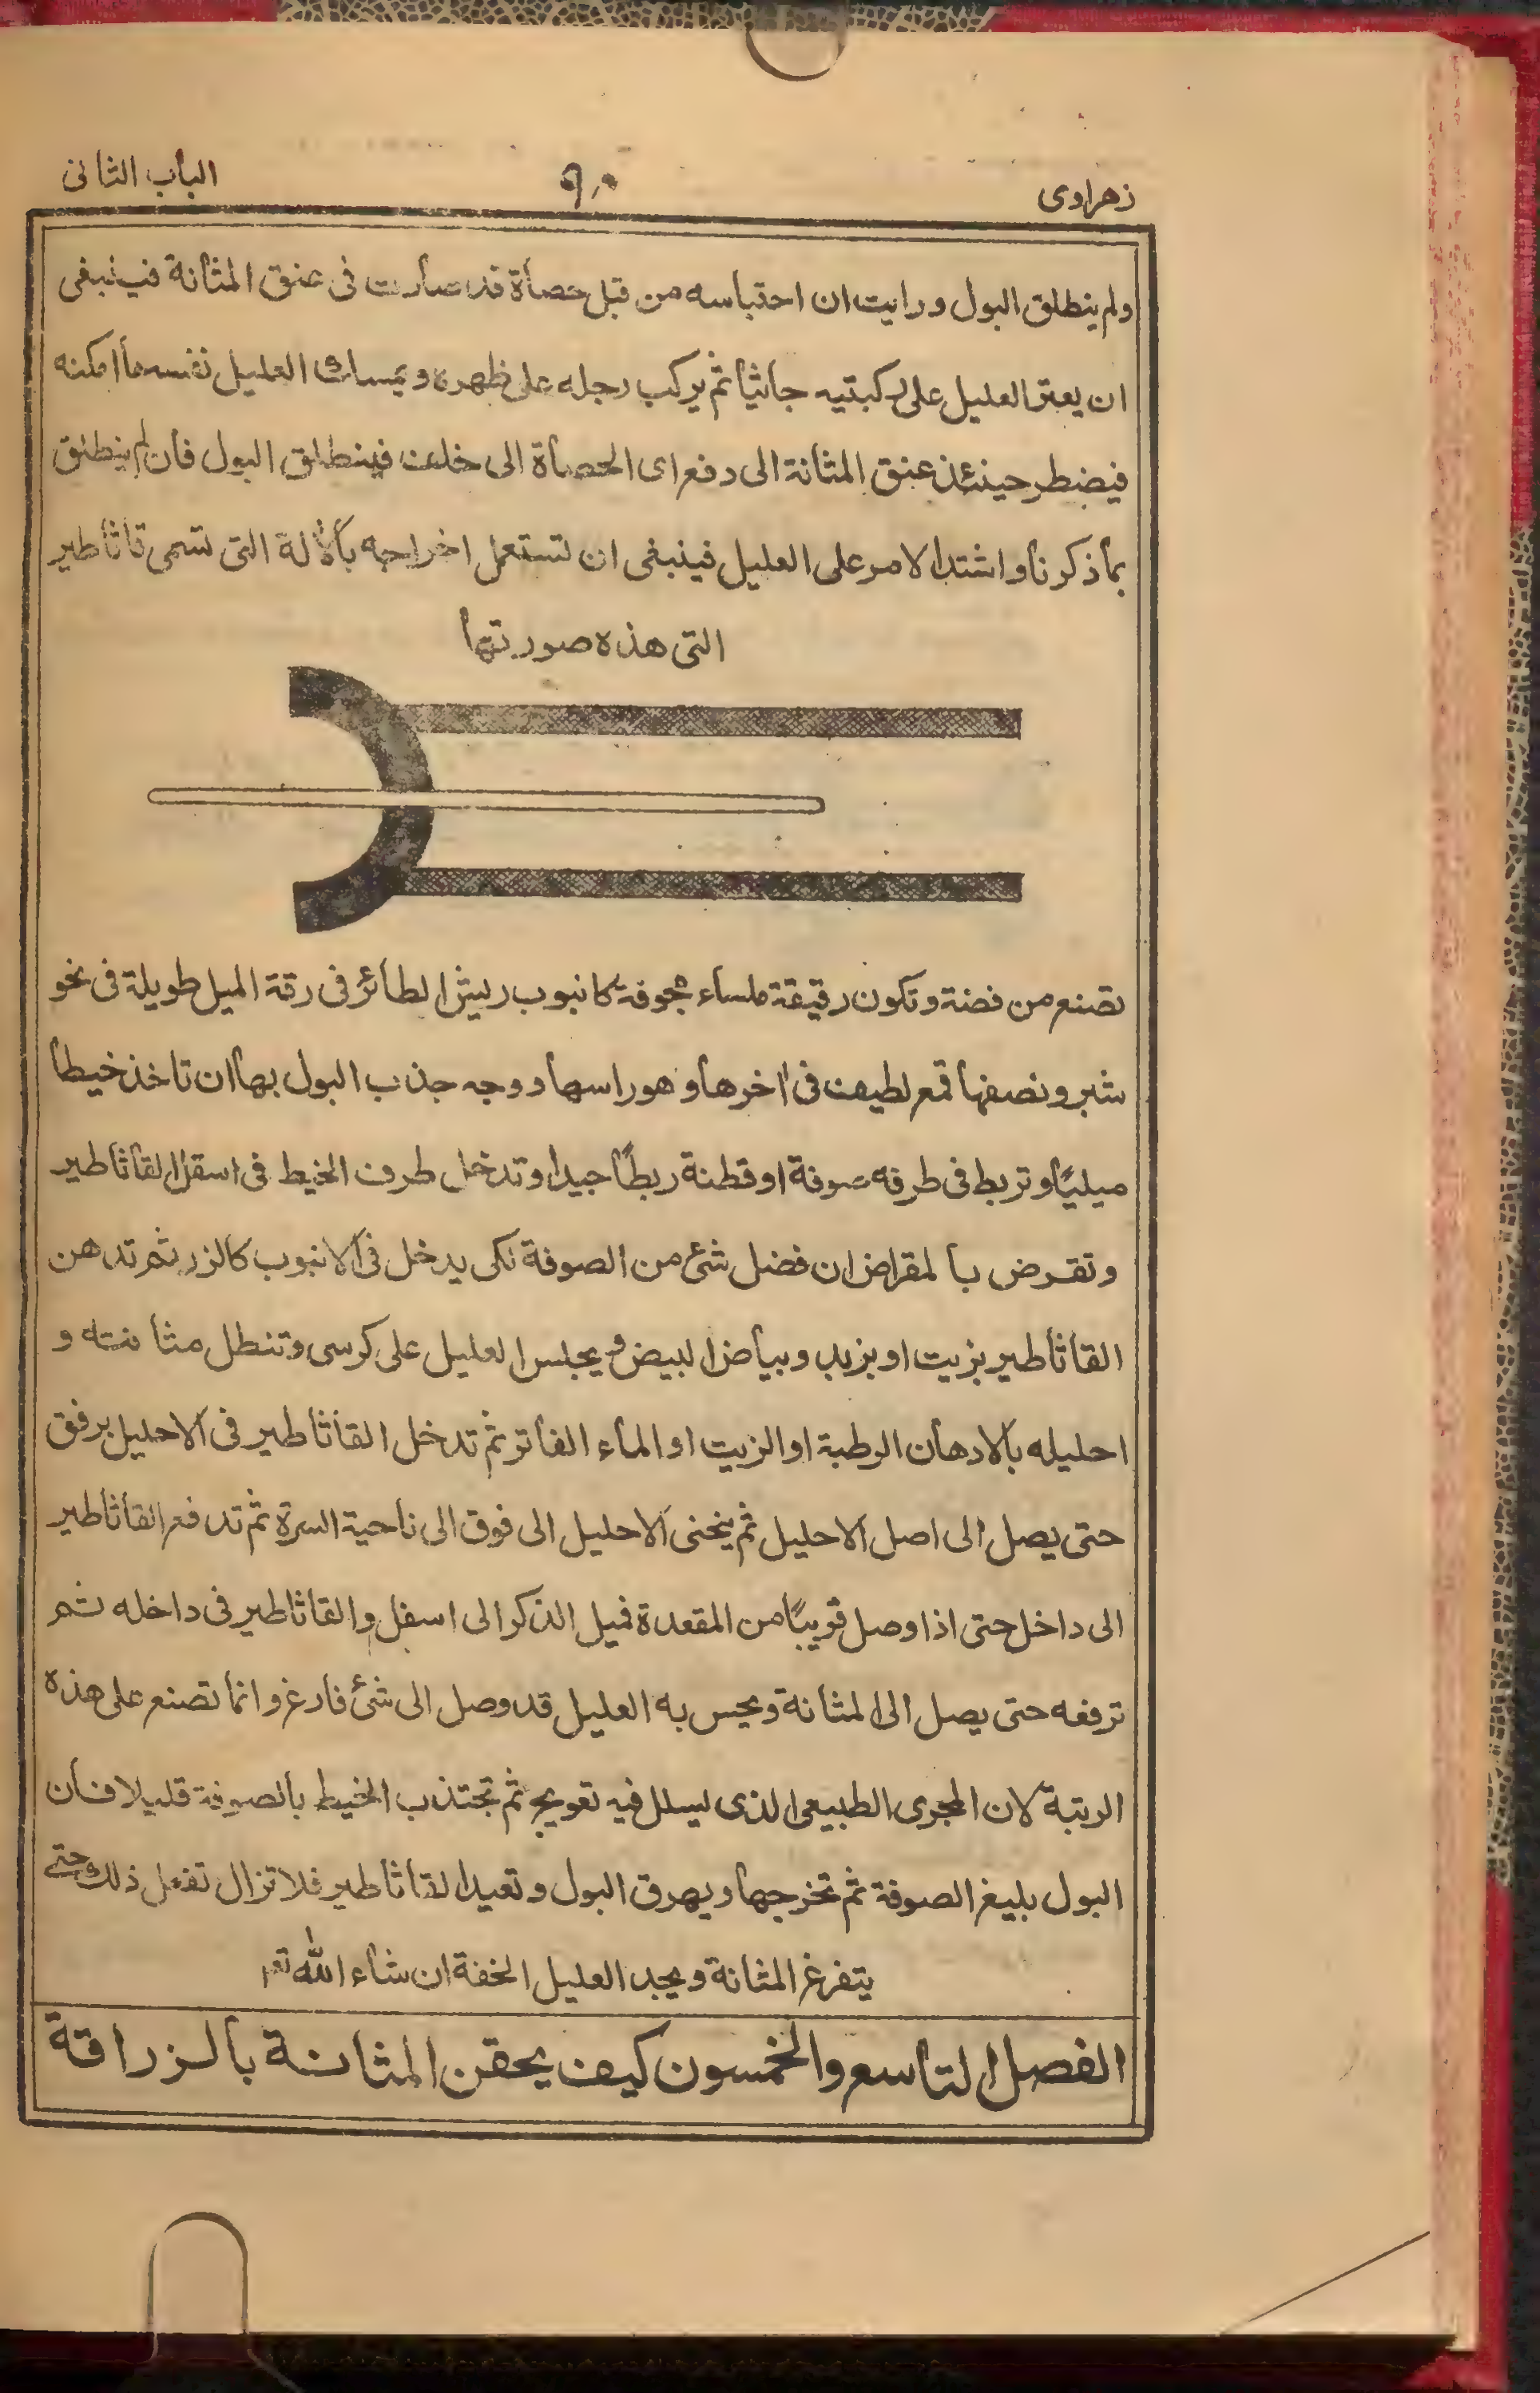 زهراوى
٩٠
الباب الثانى
ولم ينطلق البول ورايت ان احتباسه من قبل حصاة قد صارت فى عنق المثانة فينبغى
ان العليل على ركبتيه جاثيا ثم يركب رجله على ظهره ويمسك العليل نفسه ما امكنه
فيضطر حينئذ عنق المثانة الى دفع اى الحصاة الى خلف فينطلق البول فان لم ينطلق
بما ذكرنا واشتد الامر على العليل فينبغى ان تستعمل اخراجه بالألة التى تسمى قاثاطير
التى هذه صورتها
تصنع من فضة وتكون رقيقة ملساء مجوفة كانبوب ريش الطائر فى رقة الميل طويلة فى نحو
شبر ونصفها قمع لطيف فى اخرها وهو راسها ووجه جذب البول بها ان تاخذ خيطا
وتربط فى طرفه صوفة او قطنة ربطًا جيدا وتدخل طرف الخيط فى اسفل القاثاطير
وتقرض بالمقراض ان فضل شئ من الصوفة لكى يدخل فى الانبوب كالزر ثم تدهن
القاثاطير بزيت او بزبد وبياض البيض ويجلس العليل على كرسى وتنطل مثانته و
احليله بالادهان الرطبة او الزيت او الماء الفاتر ثم تدخل القاثاطير فى الاحليل برفق
حتى يصل الى اصل الاحليل ثم ينحنى الاحليل الى فوق الى ناحية السرة ثم تدفع القاثاطير
الى داخل حتى اذا وصل قريبًا من المقعدة فميل الذكر الى اسفل والقاثاطير فى داخله ثم
ترفعه حتى يصل الى المثانة ويحس به العليل قد وصل الى شئ فارغ وانما تصنع على هذه
الرتبة لان المجرى الطبيعى الذى فيه تعويج ثم تجتذب الخيط بالصوفة قليلا فان
البول بليغ الصوفة ثم تخرجها ويهرق البول وتعيد القاثاطير فلا تزال تفعل ذلك حتى
يتفرغ المثانة ويجد العليل الخفة ان شاء الله تعا
الفصل التاسع والخمسون كيف يحقن المثانة بالزراقة